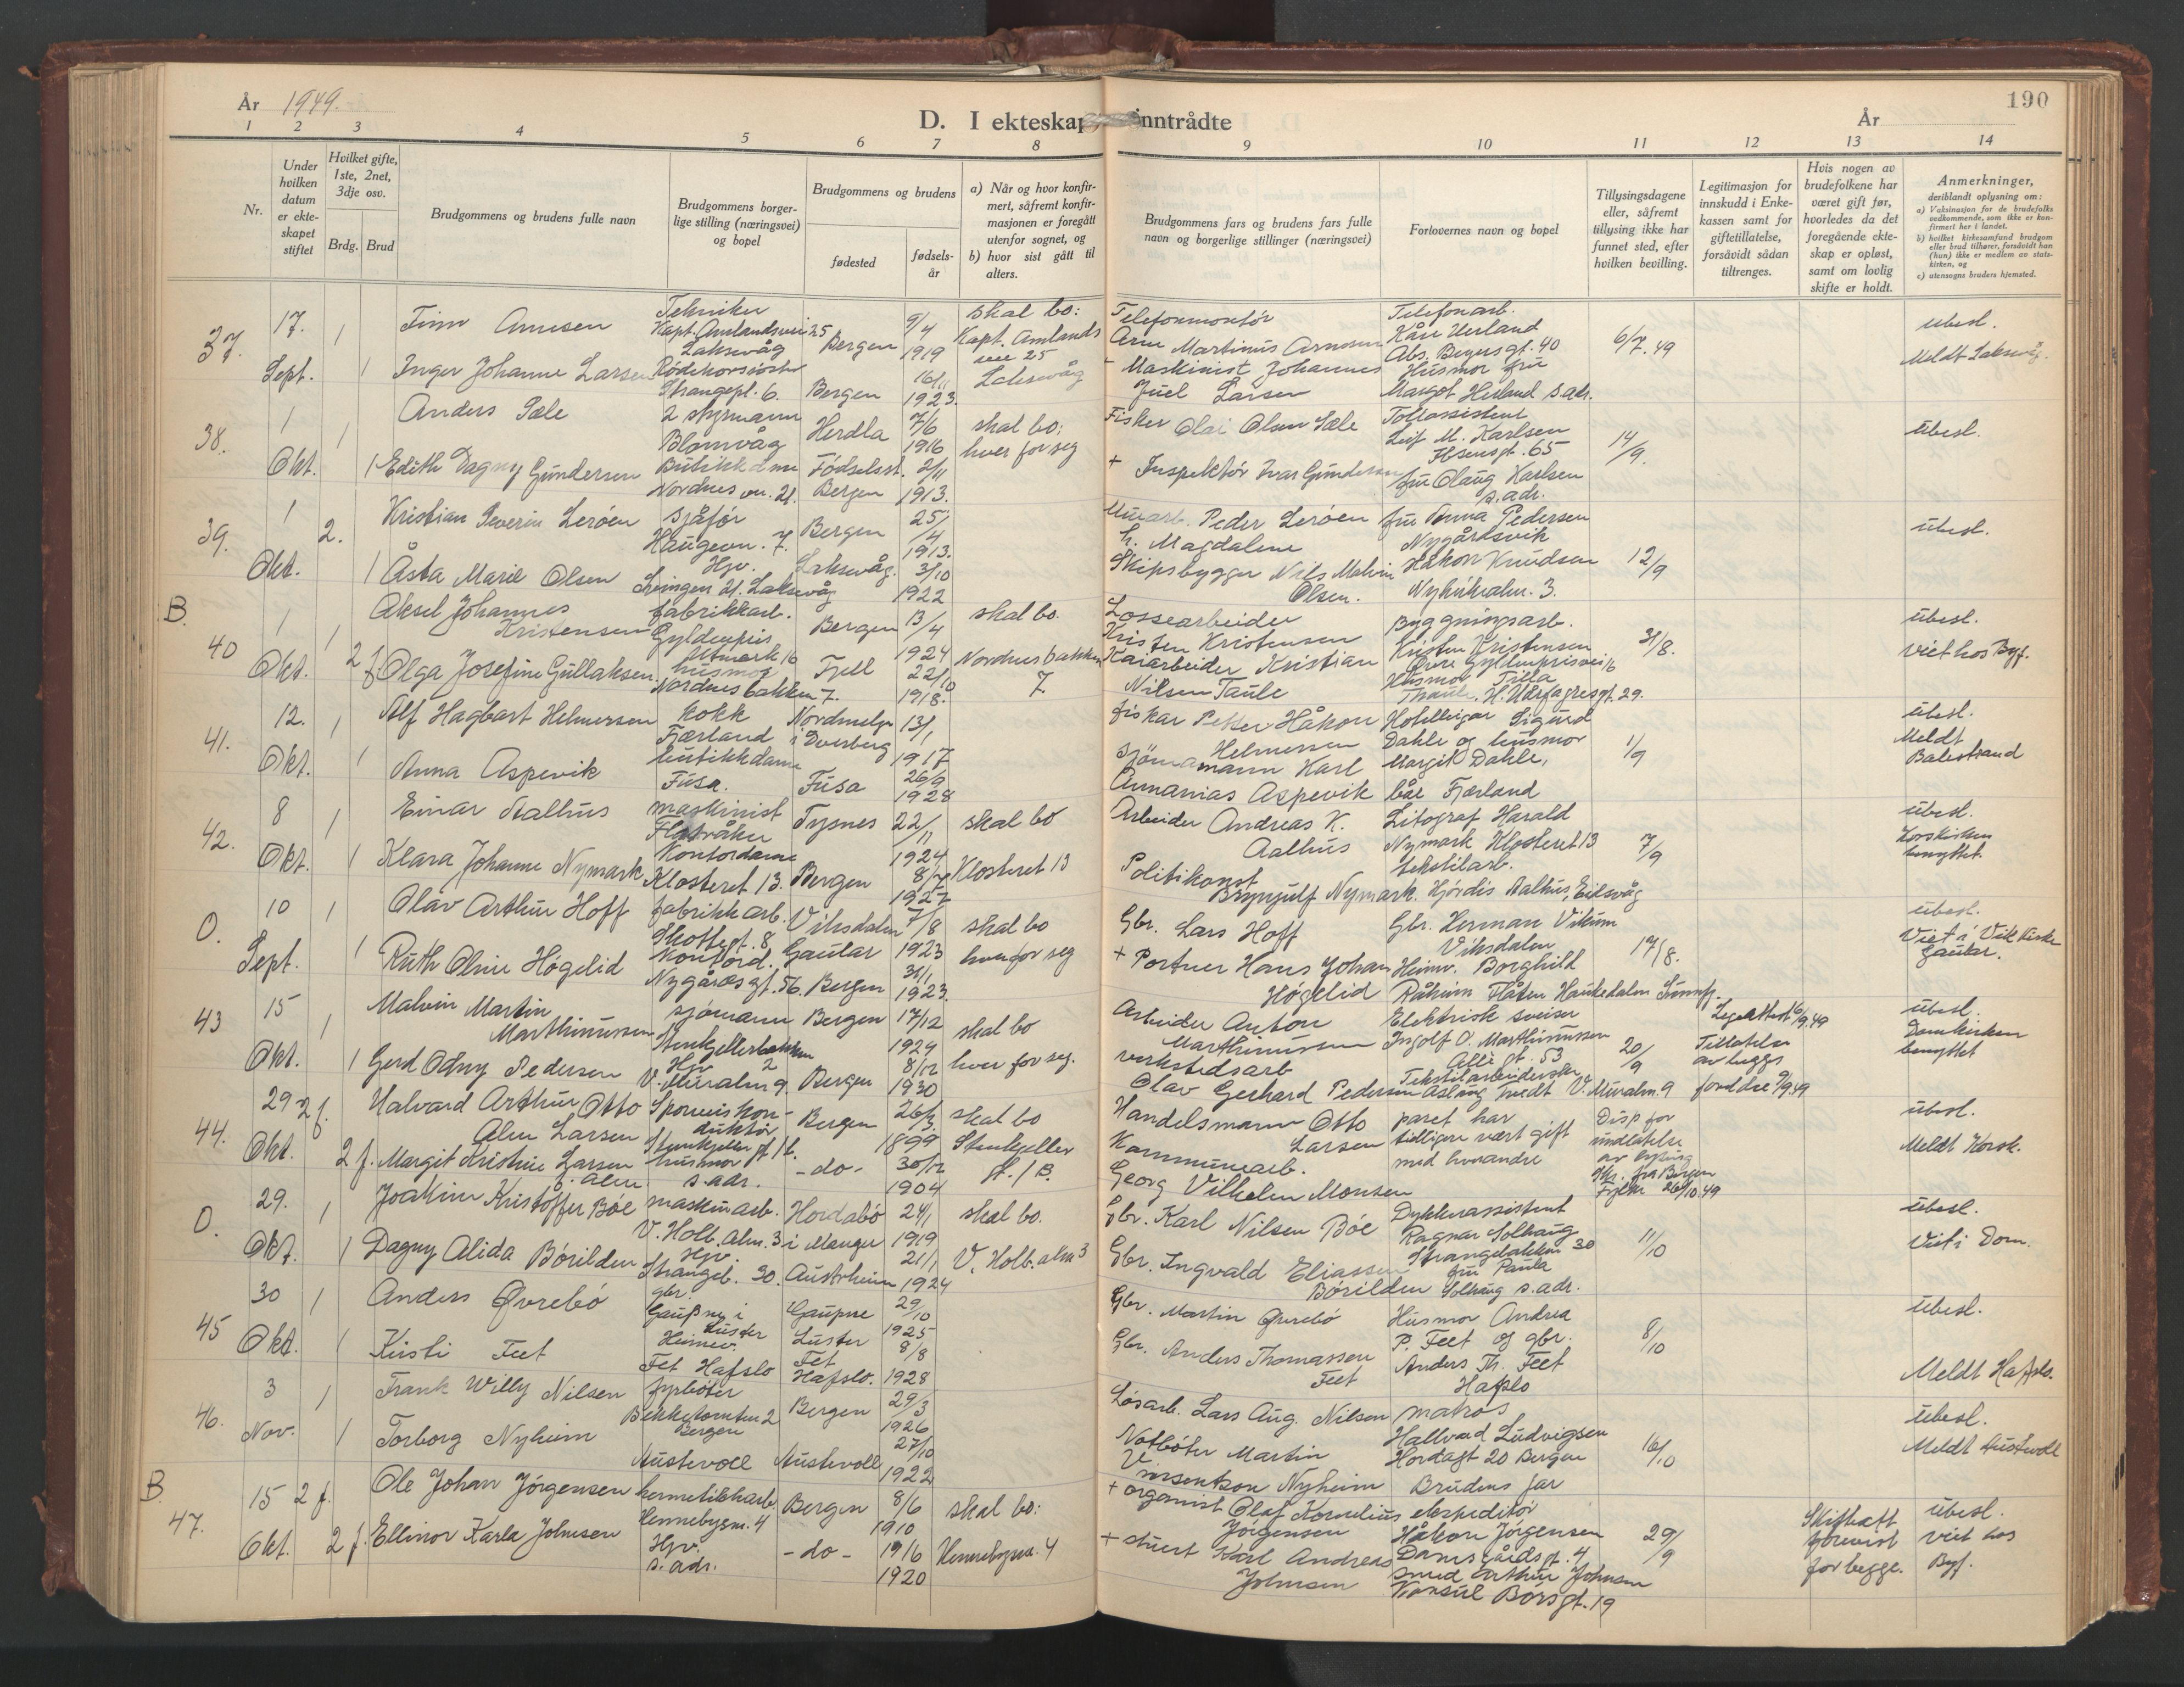 År 1949.
D. I ekteskap inntrådte
År
190
1 2 3 4 5 6 7 8 9 10 11 12 13 14
Nr.
Under hvilken datum er ekteskapet stiftet
Hvilket gifte, 1ste, 2net, 3dje osv.
Brdg. Brud
Brudgommens og brudens fulle navn
Brudgommens borgerlige stilling (næringsvei) og bopel
Brudgommens og brudens
fødested
fødselsår
a) Når og hvor konfirmert, såfremt konfirmasjonen er foregått utenfor sognet, og
b) hvor sist gått til alters.
Brudgommens fars og brudens fars fulle navn og borgerlige stillinger (næringsvei)
Forlovernes navn og bopel
Tillysingsdagene eller, såfremt tillysing ikke har funnet sted, efter hvilken bevilling.
Legitimasjon for innskudd i Enkekassen samt for giftetillatelse, forsåvidt sådan tiltrenges.
Hvis nogen av brudefolkene har været gift før, hvorledes da det foregående ekteskap er opløst, samt om lovlig skifte er holdt.
Anmerkninger, deriblandt oplysning om:
a) Vaksinasjon for de brudefolks vedkommende, som ikke er konfirmert her i landet.
b) hvilket kirkesamfund brudgom eller brud tilhører, forsåvidt han (hun) ikke er medlem av statskirken, og
c) utensogns bruders hjemsted.
37.
17. Sept.
1
Finn Arnesen
Tekniker
Kapt. Amlandsvei 25
Laksevåg
Bergen
9/4 1919
skal bo:
Kapt. Amlands vei 25
Laksevåg
Telefonmontør
Arne Martinus Arnesen
Telefonarb.
Kåre Herland
Abs. Beyersgt. 40
6/7. 49
ubesl.
Meldt Laksevåg.
1
Inger Johanne Larsen
Rødekorssøster
Strangepl. 6.
Bergen
16/11 1923.
+ Maskinist Johannes Juel Larsen
Husmor fru
Margot Herland s.adr.
38.
1 Okt.
1
Anders Sæle
2 styrmann
Blomvåg
Herdla
7/6 1916
skal bo:
hver for seg
Fisker Olai Olsen Sæle
Tollassistent
Leif M. Karlsen
Ibsensgt. 65
14/9.
ubesl.
1
Edith Dagny Gundersen
Butikkdame
Nordnesvn. 21.
Fødselsst. Bergen
2/11 1913.
+ Inspektør Ivar Gundersen
fru Olaug Karlsen
s.adr.
39.
1 Okt.
2.
Kristian Severin Lerøen
sjåfør
Haugevn. 7.
Bergen
25/4 1913.
Murarb. Peder Lerøen
fru Anna Pedersen
Nygårdsvik
12/9
ubesl.
1
Åsta Marie Olsen
Hjv.
Lyngen 21. Laksevåg
Laksevåg.
3/10 1922
Skipsbygger Nils Malvin Olsen.
Håkon Knudsen
Nyhúksalm. 3.
B.
40
1 Okt.
1
Aksel Johannes Kristensen
fabrikkarb.
Gyldenpris Utmark 16
Bergen
13/4 1924
skal bo
Nordnesbakken 7.
Lossearbeider
Kristen Kristensen
Bygningsarb.
Kristen Kristensen
Øvre Gyldenprisvei 16
31/8.
ubesl.
viet hos Byf.
2 f.
Olga Josefine Gullaksen.
husmor
Nordnesbakken 7.
Fjell
22/10 1918.
Kaiarbeider Kristian Nilsen Taule
Husmor Tilla
Thaule, H. Hårfagresgt. 29.
41.
12. Okt.
1
Alf Hagbart Helmersen
kokk
Fjærland
Nordmela i Dverberg
13/1 1917
fisker Petter Håkon Helmersen
Hotelleigar Sigurd Dahle og husmor
Margit Dahle,
båe Fjærland
1/9
ubesl.
Meldt Balestrand
1
Anna Aspevik
butikkdame
Fusa.
Fusa
26/9 1928
Sjømann Karl Annanias Aspevik
42.
8 Okt.
1
Einar Aalhus
maskinist
Flatråker
Tysnes
22/11 1924
skal bo
Klosteret 13
Arbeider Andreas K. Aalhus
Litograf Harald
Nymark Klosteret 13
7/9
ubesl.
Korskirken benyttet.
1
Klara Johanne Nymark
Kontordame
Klosteret 13.
Bergen
8/7 1927
Politikonst. Brynjulf Nymark.
tekstilarb.
Hjørdis Aalhus, Eilsvåg
O.
10 Sept.
1
Olav Arthur Hoff
fabrikkarb.
Skottegt. 8.
Viksdalen Gaular
7/8 1923
skal bo
hver for seg
Gbr. Lars Hoff
Gbr. Herman Vikum
Viksdalen
17/8.
ubesl.
Viet i Vik Kirke
Gaular.
1
Ruth Oline Høgelid
Kontord.
Nygårdsgt. 56.
Bergen
31/1 1923.
+ Portner Hans Johan Høgelid
Heimv. Borghild
Råheim Flåten Haukedalen Sunnfj.
43
15 Okt.
1
Malvin Martin Marthinussen
sjømann
Stenkjellerbakken 2
Bergen
17/12 1924
skal bo
hver for seg.
Arbeider Anton Marthinussen
Elektrisk sveiser
Ingolf O. Marthinussen
Allégt. 53
20/9
Legeattest 6/9.49
Tillatelse av beggs foreldre 9/9.49
ubesl.
Domkirken benyttet
1
Gerd Odny Pedersen
Hjv
V. Muralm 9.
Bergen
8/12 1930
verkstedsarb
Olav Gerhard Pedersen
Tekstilarbeiderske
Aslaug Tvedt V. Muralm. 9
44.
29 Okt.
2 f.
Halvard Arthur Otto Alm Larsen
Sporveiskonduktør
Stenkjellergt 1 b.
Bergen
26/3. 1899
skal bo
Stenkjeller gt. 1 B.
Handelsmann Otto Larsen
paret har
tidligere vært gift
med hverandre
Disp for
undlatelse
av lysing
Skr. fra Bergen
Fylke 26/10.49
ubesl.
Meldt Korsk.
2 f.
Margit Kristine Larsen f. Alm.
husmor
s.adr.
-do-
30/12 1904
Kommunearb.
Georg Vilhelm Monsen
O.
29. Okt.
1
Joakim Kristoffer Bøe
maskinarb.
V. Holb. Alm. 3
Hordabø i Manger
24/1 1919
skal bo.
V. Holb. alm 3
Gbr. Karl Nilsen Bøe
Dykkerassistent
Ragnar Solhaug
Strangebakken 30
11/10
ubesl.
Viet i Dom.
1
Dagny Alida Børilden
Hjv.
Strangeb. 30.
Austrheim
21/1 1924
Gbr. Ingvald Eliassen Børilden
fru Paula
Solhaug s.adr.
45
30 Okt.
1
Anders Øvrebø
gbr.
Gaupne i Luster
Gaupne Luster
29/10 1925
Gbr. Martin Øvrebø
Husmor Andrea
P. Feet og gbr.
Anders Th. Feet
Hafslo
8/10
ubesl.
Meldt Hafslo.
1
Kirsti Feet
Heimev.
Fet Hafslo
Fet Hafslo.
8/8 1928
Gbr. Anders Thomassen Feet
46.
3 Nov.
1
Frank Willy Nilsen
fyrbøter
Bekketomten 2
Bergen
Bergen
29/3 1926
Løsarb. Lars Aug. Nilsen
matros
Hallvard Ludvigsen
Hordagt 20 Bergen
16/10
ubesl.
Meldt Austevoll
1
Torborg Nyheim
Austevoll
Austevoll
27/10 1922
Notbøter Martin
Nyheim
Brudens far
B.
47.
15 Okt.
2 f.
Ole Johan Jørgensen
hermetikkarb.
Hennebysm. 4
Bergen
8/6 1910
skal bo:
Hennebysm. 4
+ organist Olaf Kornelius Jørgensen
ekspeditør
Håkon Jørgensen
Damsgårdsgt. 4
29/9
Skifteatt
forevist
for begge.
ubesl.
viet hos Byf.
2 f.
Ellinor Karla Johnsen
Hjv.
s.adr.
-do-
19/6 1920
+ stuert Karl Andreas Johnsen
smed Arthur Johnsen
Konsul Børsgt. 19